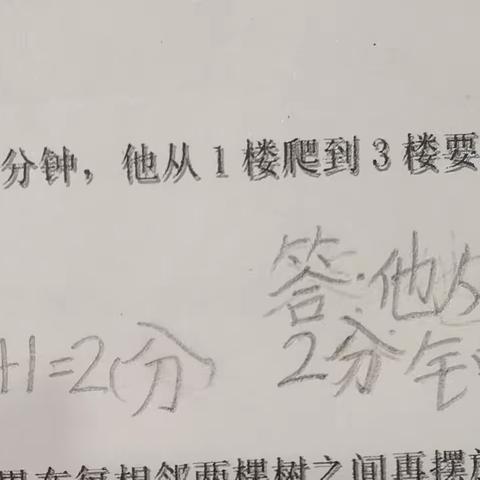 分钟，他从1楼爬到3楼要
答：他从
+1=2(分)
2分钟
在每相邻两棵树之间再摆